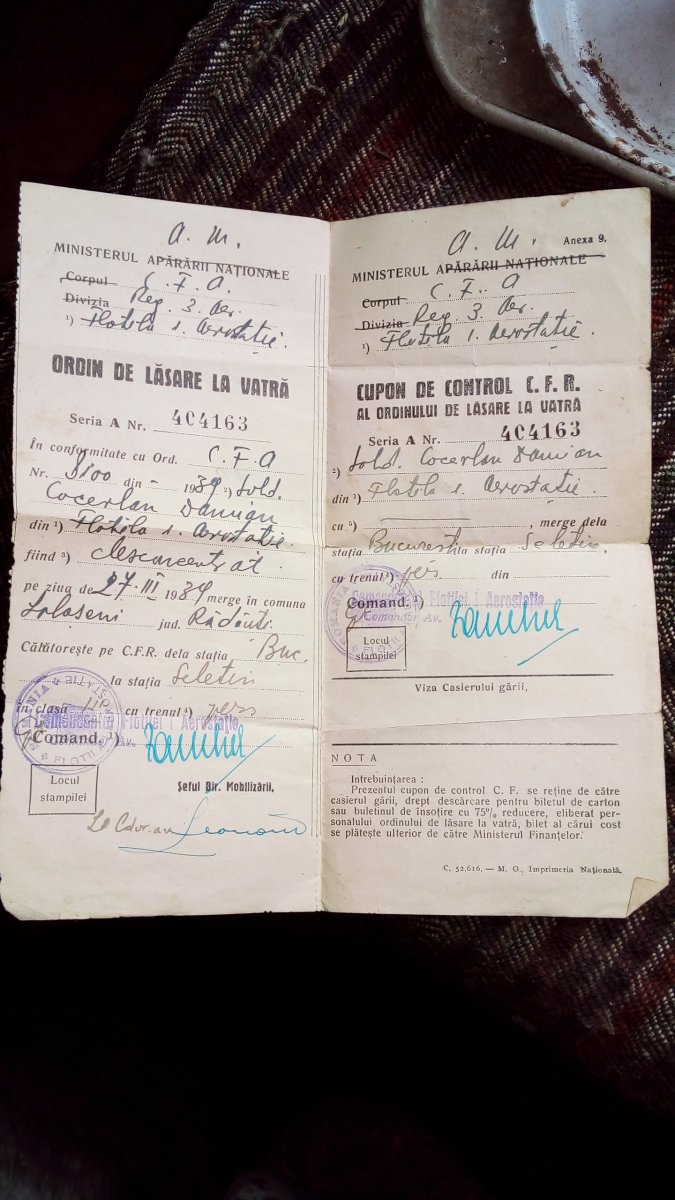 A. M.
MINISTERUL APĂRĂRII NAȚIONALE
Corpul C. F. A.
Divizia Reg. 3. Aer.
¹) Flotila 1. Aerostatie.
ORDIN DE LĂSARE LA VATRĂ
Seria A Nr. 404163
În conformitate cu Ord. C. F. A
Nr. 3100 din - 1939 ²) Sold.
Cocerlan Damian
din ¹) Flotila 1. Aerostatie.
fiind ³) desconcentrat.
pe ziua de 27-III 1939 merge în comuna
jud. Rădăuți
Călătorește pe C.F.R. dela stația Buc.
la stația Seletin
în clasa III cu trenul ⁴) pers
Comandantul Flotilei 1 Aerostatie
Comand. ¹)
Comandor Av.
ROMANIA
FLOTIL
Locul
ștampilei
Șeful Bir. Mobilizării,
A. M. Anexa 9.
MINISTERUL APĂRĂRII NAȚIONALE
Corpul C. F. A
Divizia Reg. 3. Aer.
¹) Flotila 1. Aerostatie.
CUPON DE CONTROL C. F. R.
AL ORDINULUI DE LĂSARE LA VATRĂ
Seria A Nr. 404163
²) Sold. Cocerlan Damian
din ¹) Flotila 1. Aerostatie.
cu ⁵) , merge dela
stația Bucuresti la stația Seletin
cu trenul ⁴) pers. din
Comandantul Flotilei 1 Aerostatie
Comand. ¹)
Comandor Av.
ROMANIA
FLOTIL
Locul
ștampilei
Viza Casierului gării,
NOTA
Întrebuințarea :
Prezentul cupon de control C. F. se reține de către
casierul gării, drept descărcare pentru biletul de carton
sau buletinul de însoțire cu 75% reducere, eliberat per-
sonalului ordinului de lăsare la vatră, bilet al cărui cost
se plătește ulterior de către Ministerul Finanțelor.
C. 52,616. — M. O., Imprimeria Națională.